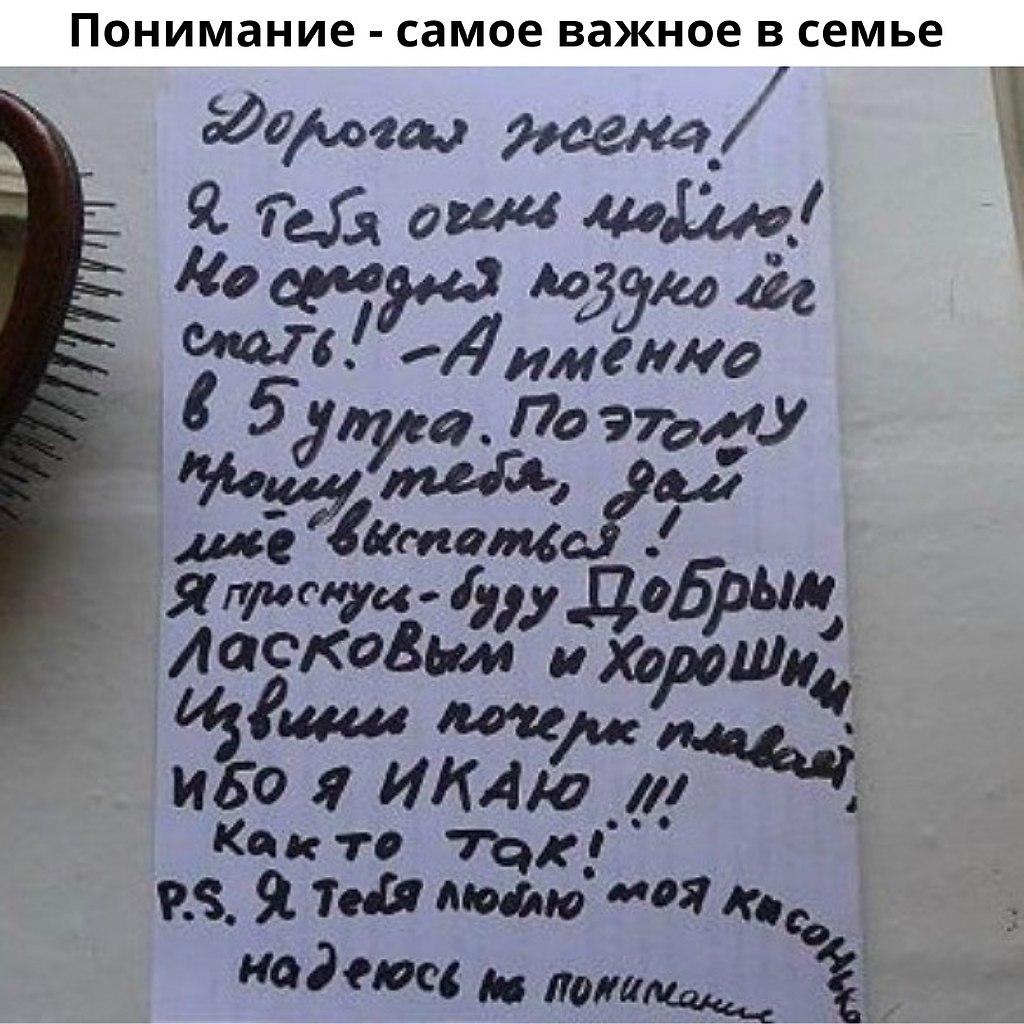 Понимание - самое важное в семье
Дорогая жена!
Я тебя очень люблю!
Но сегодня поздно лёг
спать! - А именно
в 5 утра. Поэтому
прошу тебя, дай
мне выспаться!
Я проснусь - буду ДоБрым,
ЛасКоВым и ХороШим.
Извини почерк плавает,
ИБО Я ИКАЮ !!!
Как то так!
P.S. Я тебя люблю моя кисонька
надеюсь на понимание